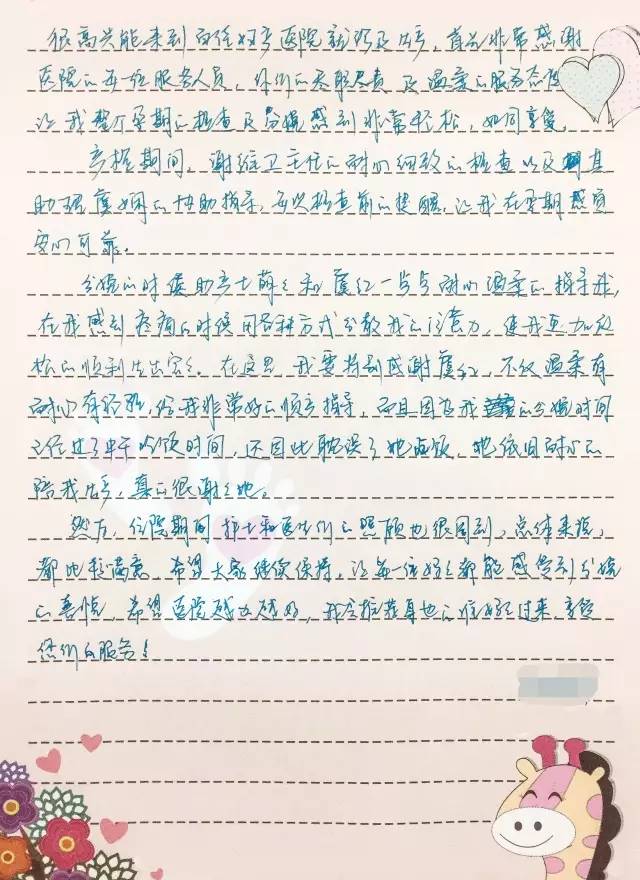 很高兴能来到百佳妇产医院就诊及生产，首先非常感谢
医院的每一位服务人员，你们的尽职尽责及温柔的服务态度
让我整个孕期的检查及分娩感到非常轻松，如同享受。
产检期间，谢维卫主任的耐心细致的检查以及其
助理虞娴的协助指导，每次检查前的提醒，让我在孕期感觉
安心可靠。
分娩的时候助产士萌萌和虞红一步步耐心温柔的指导我，
在我感到疼痛的时候用各种方式分散我的注意力，使我更加放
松的顺利生出宝宝。在这里我要特别感谢虞红，不仅温柔有
耐心有经验，给我非常好的顺产指导，而且因为我的分娩时间
已经过了中午吃饭时间，还因此耽误了她吃饭，她依旧耐心的
陪我生产，真的很谢谢她。
然后，住院期间护士和医生们的照顾也很周到，总体来说，
都比较满意。希望大家继续保持，让每一位妈妈都能感受到分娩
的喜悦，希望医院越办越好，我会推荐身边的准妈妈过来，享受
你们的服务！